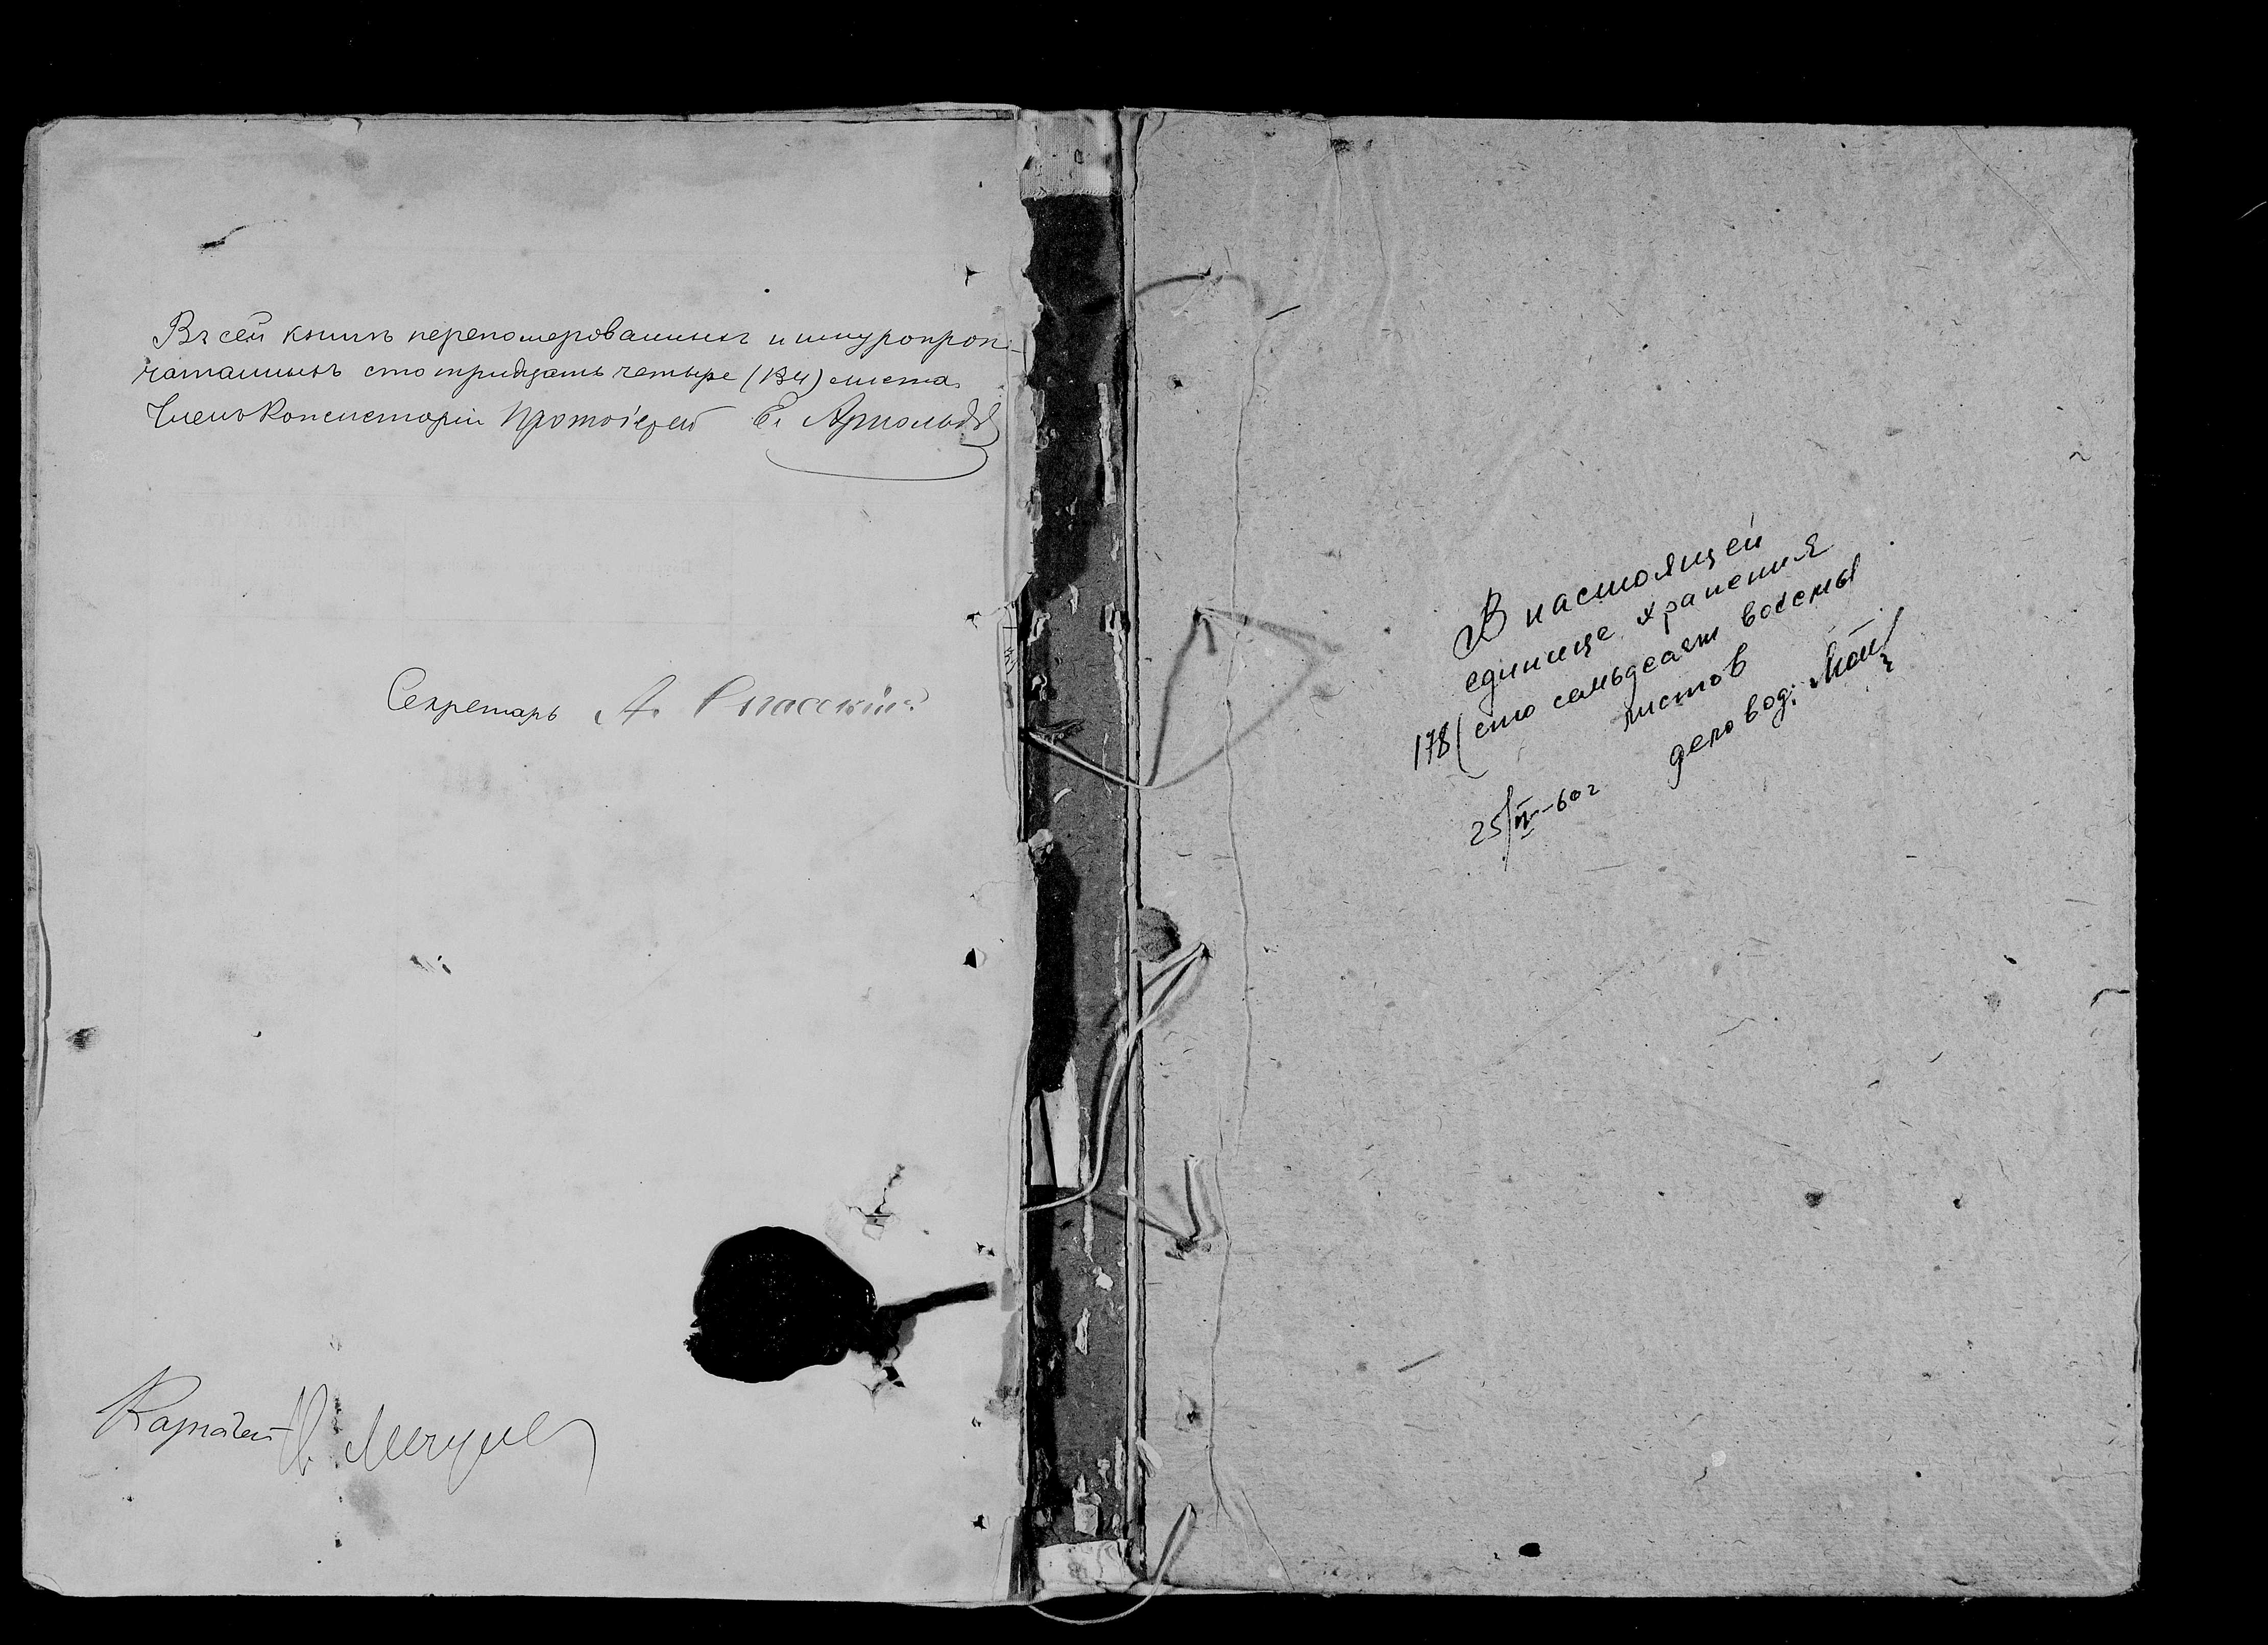 Въ сей книгѣ переномерованныхъ и шнуропроп-
чатанныхъ сто тридцать четыре (134) листа.
Членъ Консисторіи Протоіерей Е. Арнольдъ
Секретарь А. Спасскій
В настоящей
единице хранения
178 (сто семьдесят восемь
листов
деловод:
25/ -60г